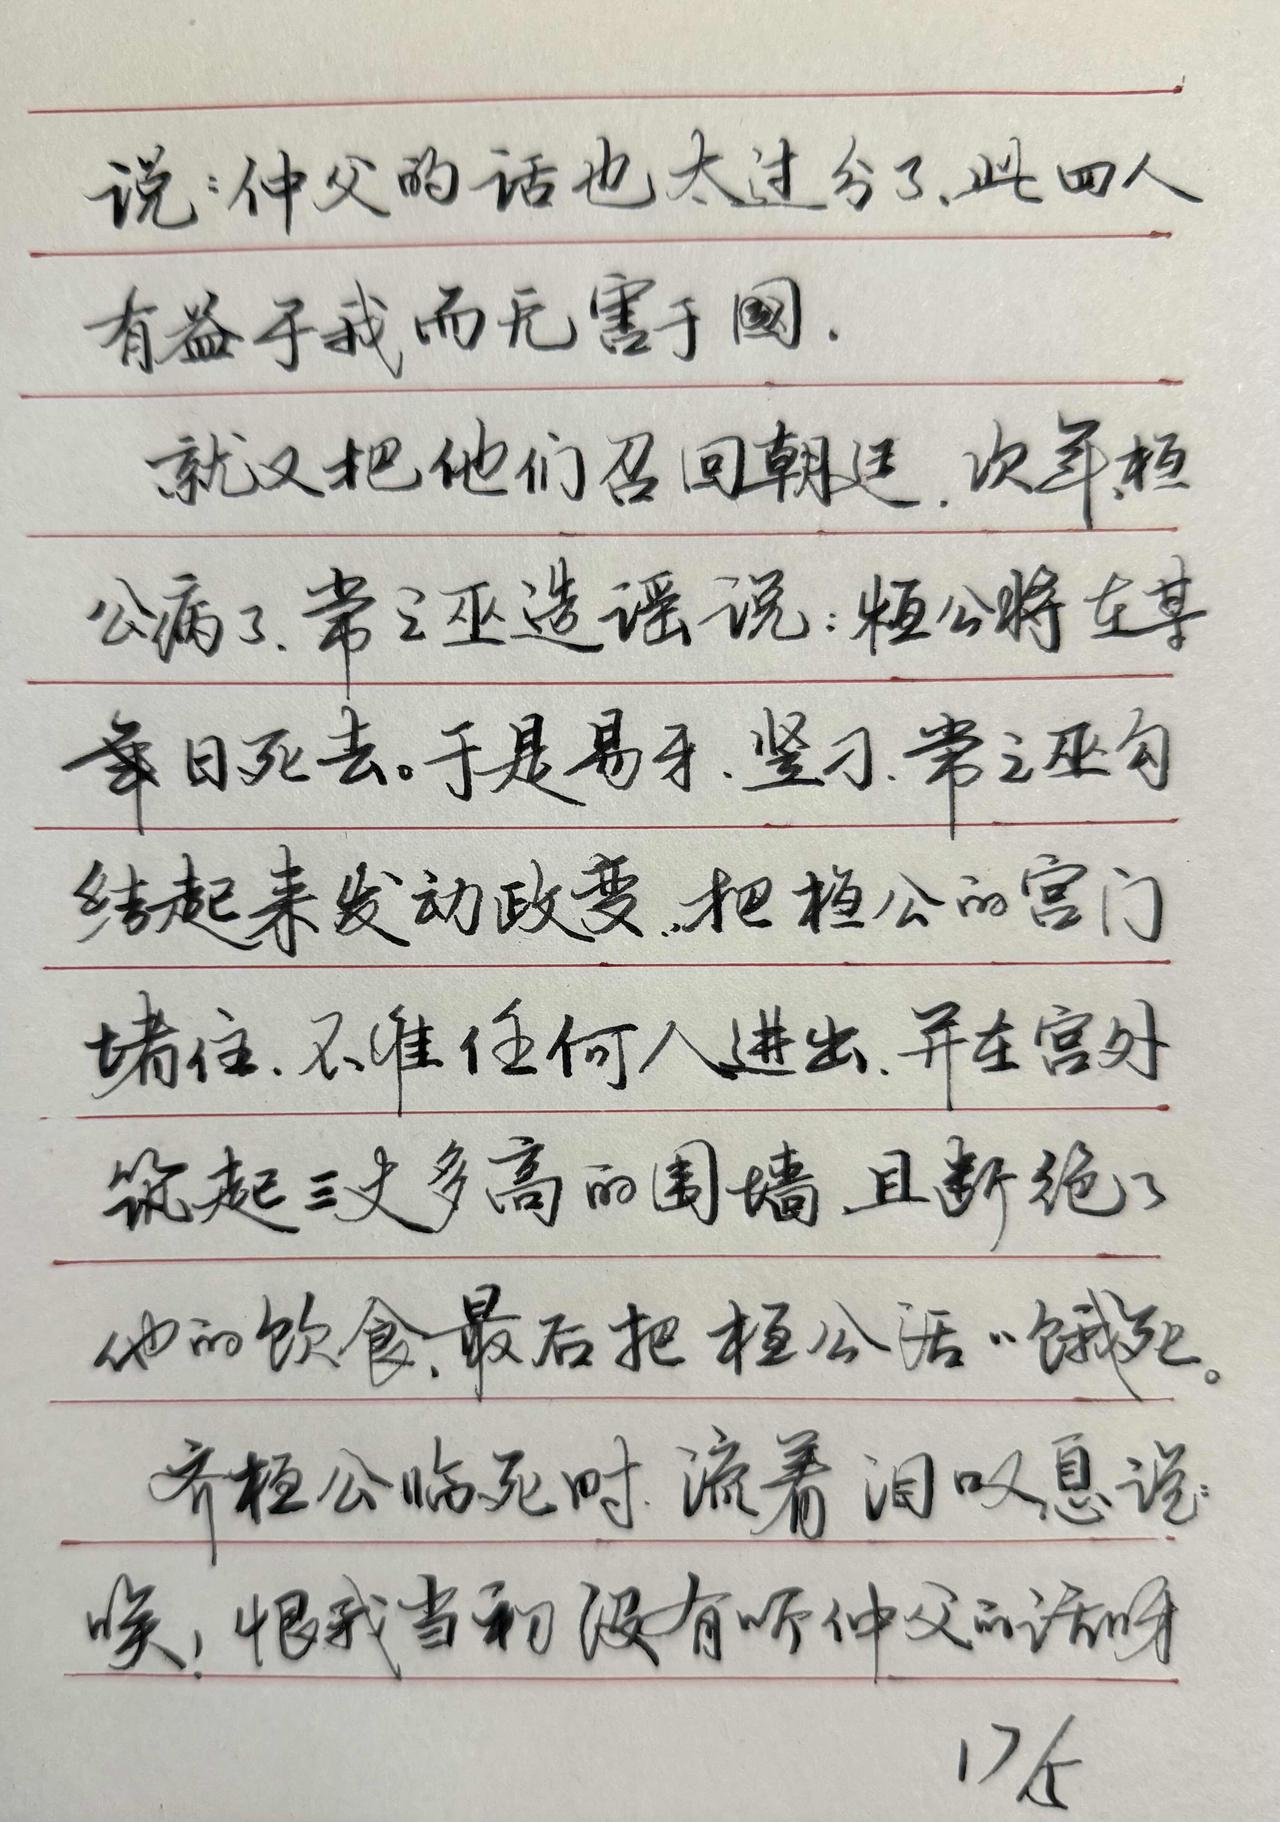 说：仲父的话也太过分了、此四人
有益于我而无害于国.
就又把他们召回朝廷.次年,桓
公病了、常之巫造谣说：桓公将在某
年日死去。于是易牙、竖刁、常之巫勾
结起来发动政变,把桓公的宫门
堵住、不准任何人进出、并在宫外
筑起三丈多高的围墙、且断绝了
他的饮食、最后把桓公活"饿死。
齐桓公临死时、流着泪叹息说：
唉！恨我当初没有听仲父的话呀
17/5